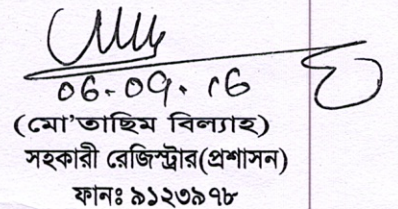 06-09-16
(মো'তাছিম বিল্যাহ)
সহকারী রেজিস্ট্রার(প্রশাসন)
ফানঃ ৯১২৩৯৭৮